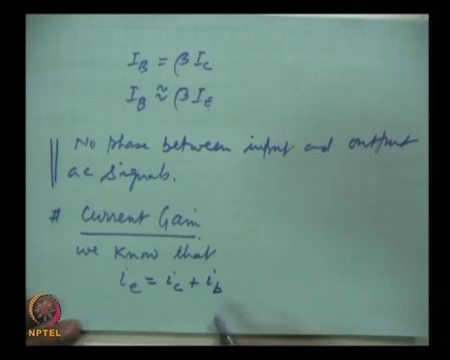 I_B = β I_C
I_B ≈ β I_E
No phase between input and output
ac signals.
# Current Gain
we know that
i_e = i_c + i_b
NPTEL